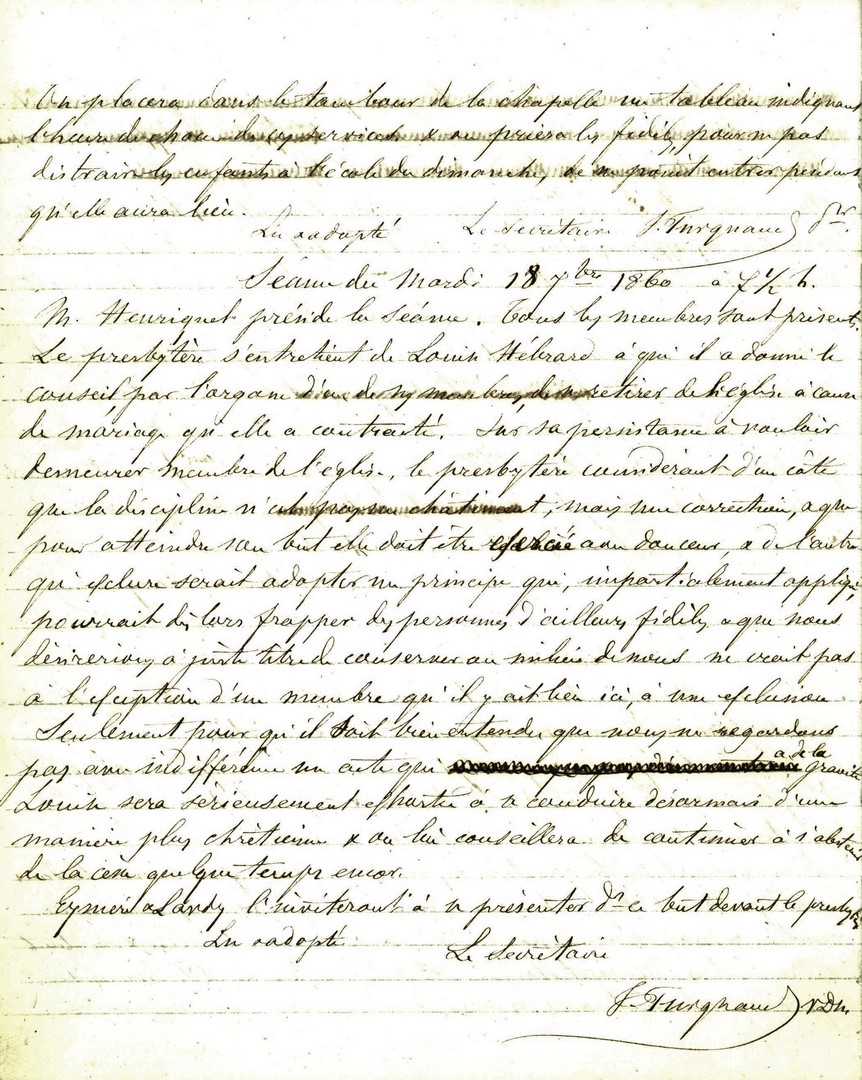 On placera dans le tambour de la chapelle un tableau indiquant
l'heure de chacun de ces services & on priera les fidèles, pour ne pas
distraire les enfants à l'école du dimanche, de ne point entrer pendant
qu'elle aura lieu.
Lu & adopté Le secrétaire J. Turgnaud
Séance du Mardi 18 7bre 1860 à 7 ½ h.
M. Henriquet préside la séance. Tous les membres sont présents.
Le presbytère s'entretient de Louise Hébrard à qui il a donné le
conseil par l'organe d'un de ses membres, de se retirer de l'église à cause
de mariage qu'elle a contracté. Sur sa persistance à vouloir
demeurer membre de l'église, le presbytère considérant d'un côté
que la discipline n'est pas un châtiment, mais une correction, & que
pour atteindre son but elle doit être exercée avec douceur, & de l'autre
qu'exclure serait adopter un principe qui, impartialement appliqué,
pourrait dès lors frapper des personnes d'ailleurs fidèles & que nous
désirerions à juste titre de conserver au milieu de nous ne croit pas
à l'exception d'un membre qu'il y ait lieu ici, à une exclusion
Seulement pour qu'il soit bien entendu que nous ne regardons
pas avec indifférence un acte qui a de la gravité
Louise sera sérieusement exhortée à se conduire désormais d'une
manière plus chrétienne & on lui conseillera de continuer à s'abstenir
de la cène quelque temps encor.
Eymeri & Lardy l'inviteront à se présenter ds ce but devant le presbytère
Lu & adopté
Le secrétaire
J. Turgnaud v.D.m.